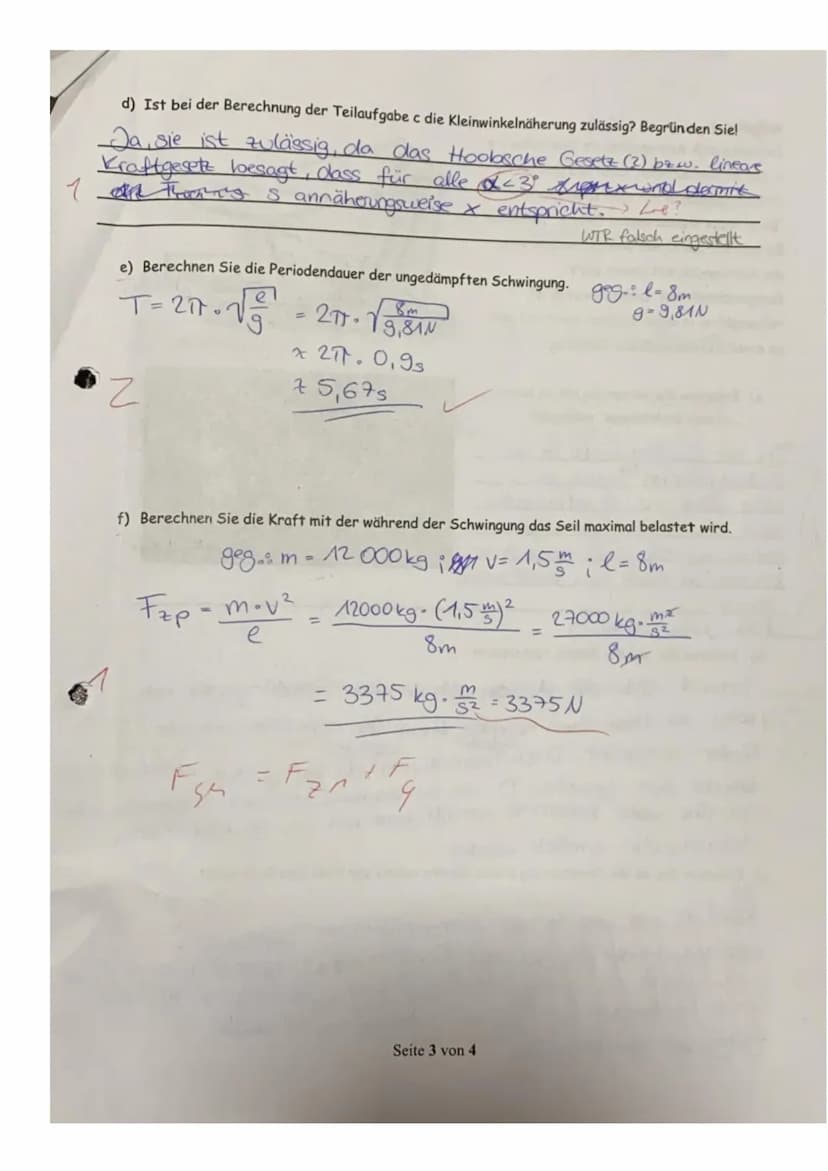 d) Ist bei der Berechnung der Teilaufgabe c die Kleinwinkelnäherung zulässig? Begründen Sie!
Ja, sie ist zulässig, da das Hoobsche Gesetz (2) bzw. lineare
Kraftgesetz besagt, dass für alle α<3°
1 s annäherungsweise x entspricht.
WTR falsch eingestellt
e) Berechnen Sie die Periodendauer der ungedämpften Schwingung.
geg.: l = 8m
g = 9,81N
T = 2π · √(l/g) = 2π · √(8m/9,81N)
≈ 2π · 0,9s
≈ 5,67s ✓
2
f) Berechnen Sie die Kraft mit der während der Schwingung das Seil maximal belastet wird.
geg.: m = 12 000kg ; v = 1,5 m/s ; l = 8m
Fzp = m·v²/l = 12000kg · (1,5 m/s)²/8m = 27000 kg · m²/s²/8m
1
= 3375 kg · m/s² = 3375N
Seite 3 von 4